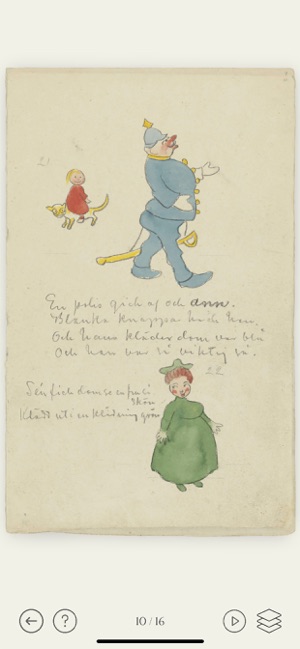 21
En polis gick af och ann.
Blanka knappar hade han.
Och hans kläder dom var blå
Och han var så viktig så.
22
Sen fick dom se en fru i
skön
Klädd uti en klädning grön
10 / 16